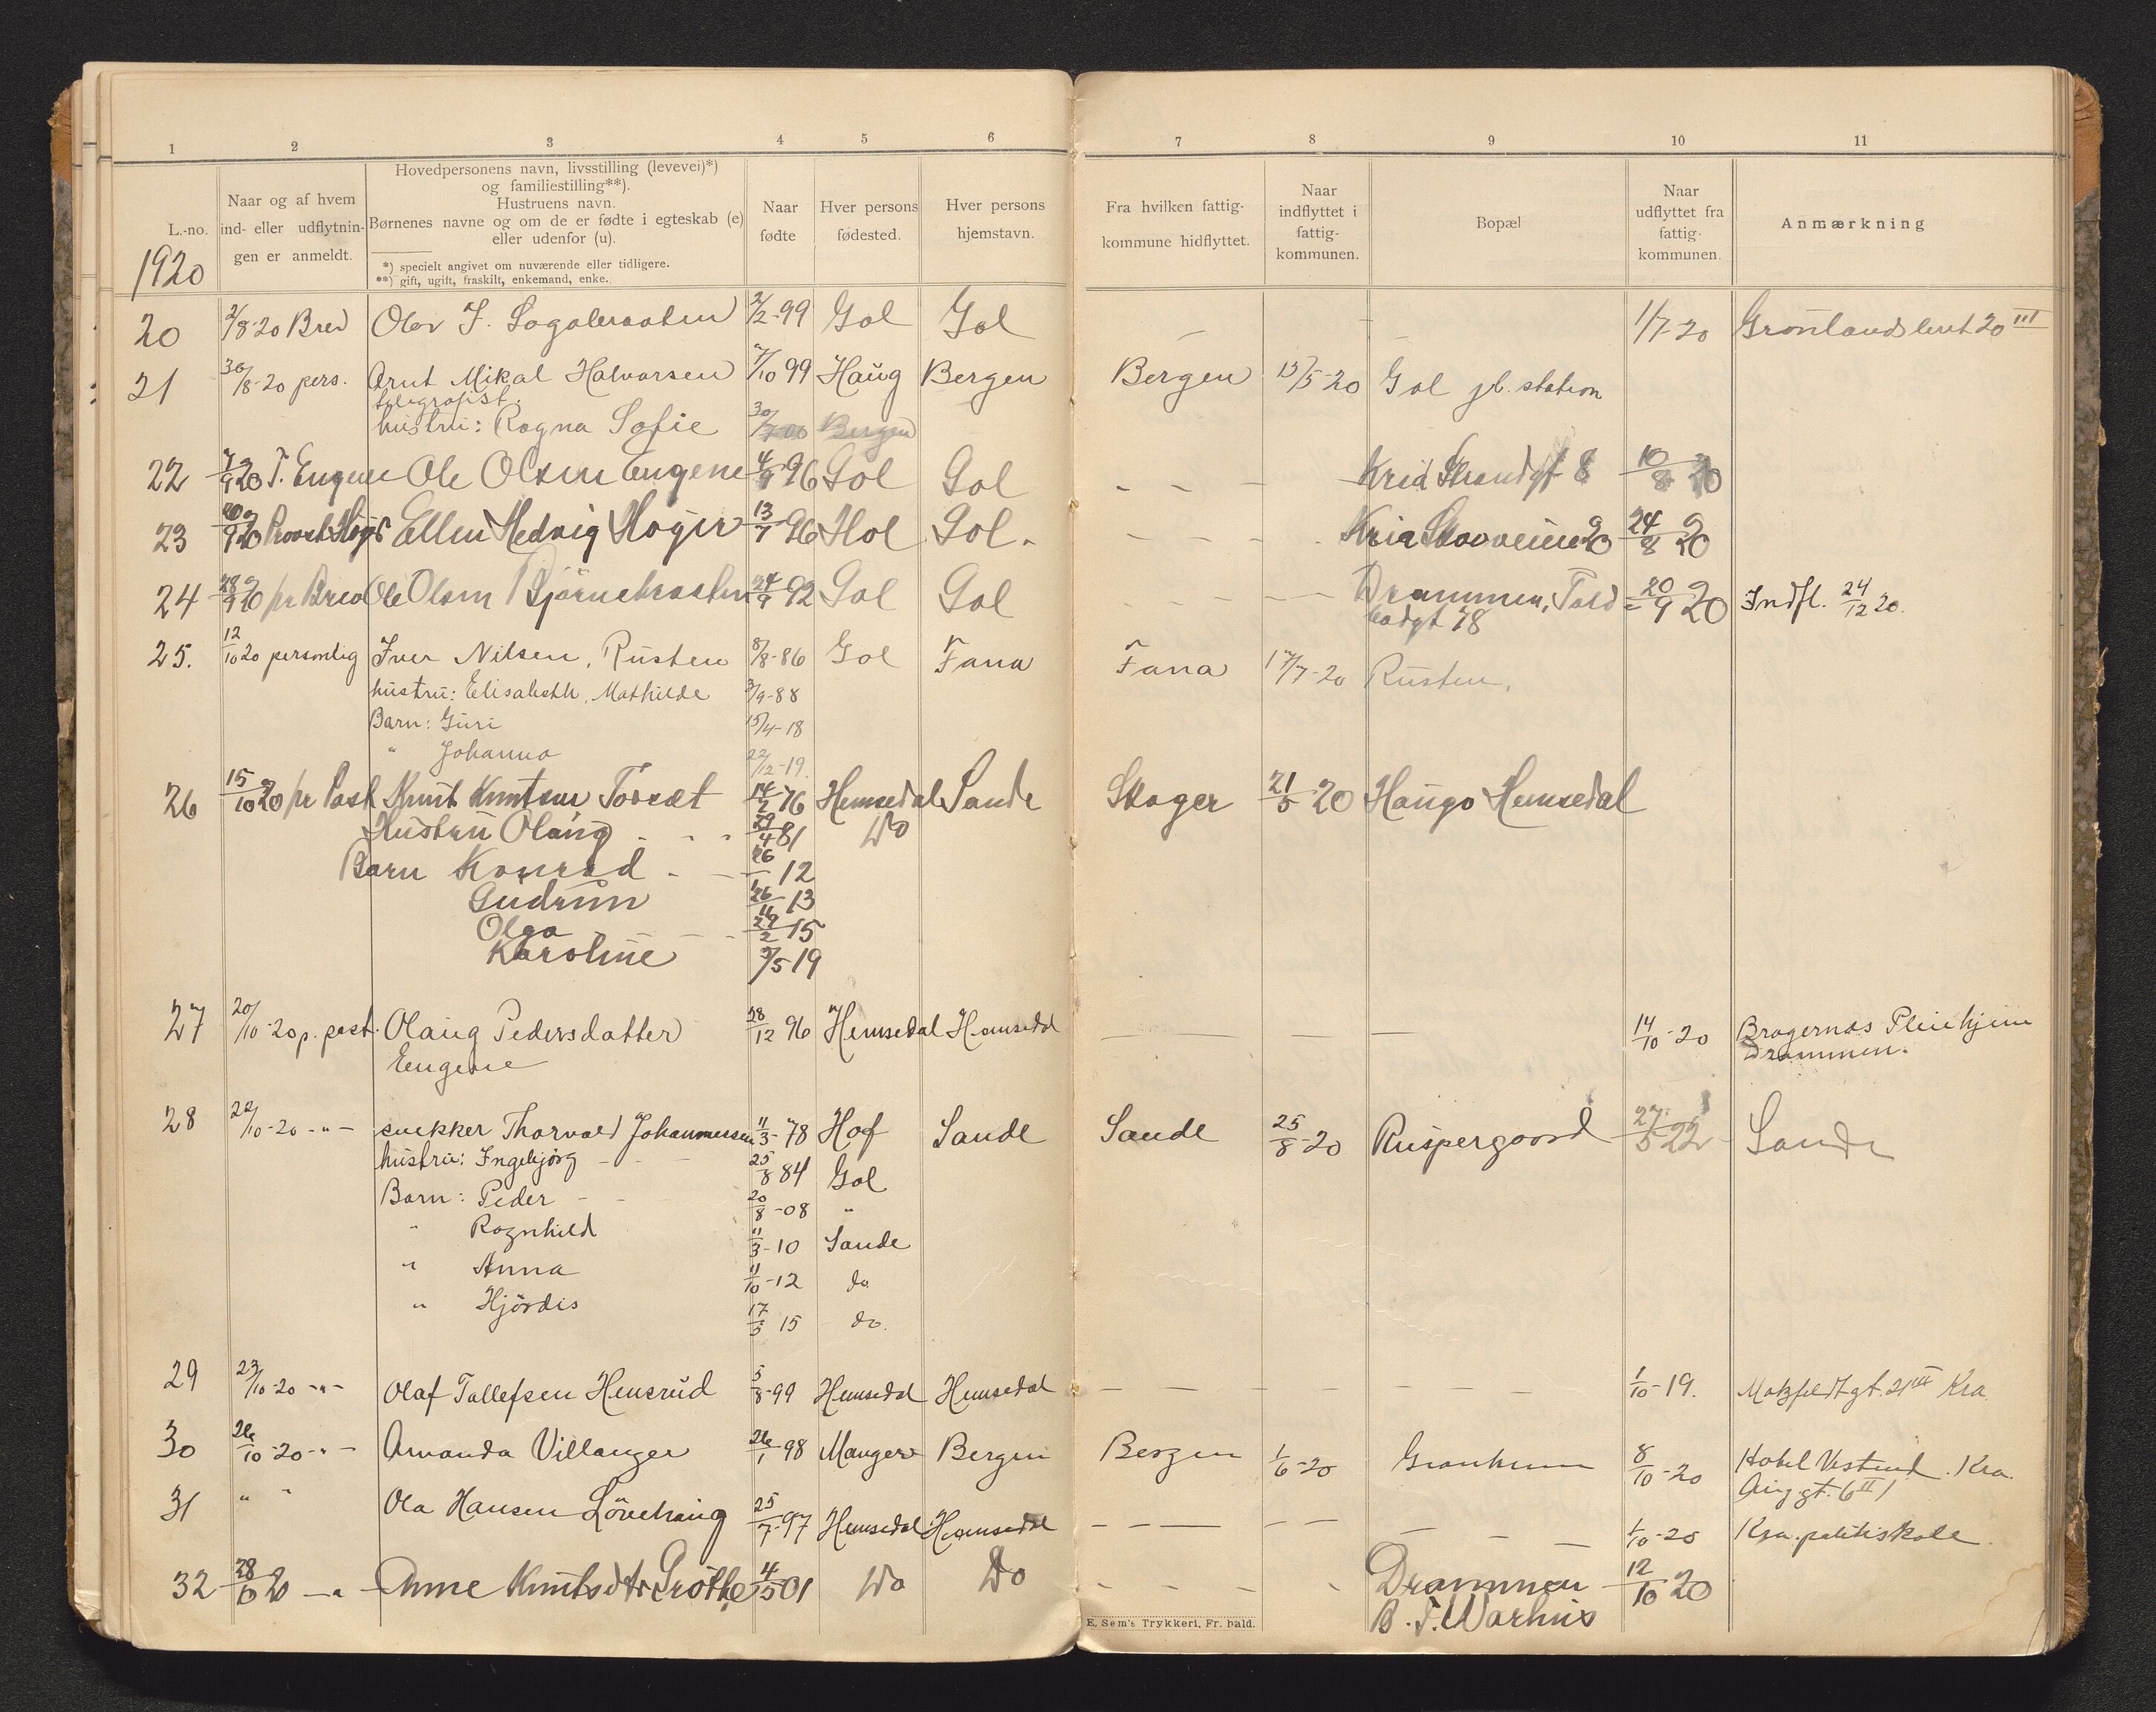 1 2 3 4 5 6 7 8 9 10 11
L.-no.
1920
Naar og af hvem
ind- eller udflytnin-
gen er anmeldt.
Hovedpersonens navn, livsstilling (levevei)*)
og familiestilling**).
Hustruens navn.
Børnenes navne og om de er fødte i egteskab (e)
eller udenfor (u).
*) specielt angivet om nuværende eller tidligere.
**) gift, ugift, fraskilt, enkemand, enke.
Naar
fødte
Hver persons
fødested.
Hver persons
hjemstavn.
Fra hvilken fattig-
kommune hidflyttet.
Naar
indflyttet i
fattig-
kommunen.
Bopæl
Naar
udflyttet fra
fattig-
kommunen.
Anmærkning
20 2/8-20 Brev Olav 2/2-99 Gol Gol — — — 1/7-20 20 III
21 30/8-20 pers. Arnt Mikal Halvorsen 7/10 99 Haug Bergen Bergen 15/5-20 Gol jb. station
telegrafist.
hustru: Ragna Sofie 30/7-00 Bergen
22 7/9 20 T. Engene Ole Olsen Engene 4/9 96 Gol Gol - - - Kria Strandgt 8 10/8 20
23 20/9 20 Ellen Hedvig Høyer 13/7 96 Hol Gol. - - - - Kria 24/8 20
24 28/9 20 pr Brev Ole Olsen 24/9 92 Gol Gol - - - - - Drammen, Told 20/9 20 Indfl. 24/12 20.
bodgt 78
25. 12/10 20 personlig Iver Nilsen, Rusten 8/8-86 Gol Fana Fana 17/7-20 Rusten,
hustru: Elisabeth, Mathilde 3/9-88
Barn: Guri 15/4-18
" Johanna 22/12-19.
26 15/10 20 pr Post Knut Knutsen Torset 14/2 76 Hemsedal Sande Skoger 21/5-20 Haugo Hemsedal
Hustru Olaug - - - 29/4 81 Do
Barn Konrad - - 12
Gudrun 13
Olga - - 15
Karoline 5 19
27 20/10-20 p. post. Olaug Pedersdatter 28/12 96 Hemsedal Hemsedal — — — 14/10-20 Bragernæs Pleiehjem
Engene Drammen.
28 22/10-20 -"- snekker Thorvald Johannessen 11/3-78 Hof Sande Sande 25/8-20 Ruspergaard 27/5-22 Sande
hustru: Ingebjørg - - - 25/8 84 Gol
Barn: Peder - - 20/8-08 "
" Ragnhild 11/3-10 Sande
" Anna 11/10-12 do
" Hjørdis 17/5 15 do.
29 23/10-20 -"- Olaf Tollefsen Hensrud 5/8-99 Hemsedal Hemsedal — — — — — 1/10-19. Motzfeldtgt. 21 III Kra
30 26/10-20 -"- Amanda Villanger 26/1-98 Manger Bergen Bergen 1/6-20 Granheim 8/10-20 Hotel Vestend. Kra.
gt. 6 II
31 " " Ola Hansen Løvehaug 25/7-97 Hemsedal Hemsedal — — — — — 1/10-20 Kra. politiskole.
32 28/10 20 -"- Anne Knutsdtr Grøthe 4/5 01 Do Do - - - - Drammen 12/10 20
B. T. Warhus
E. Sem's Trykkeri, Fr. hald.